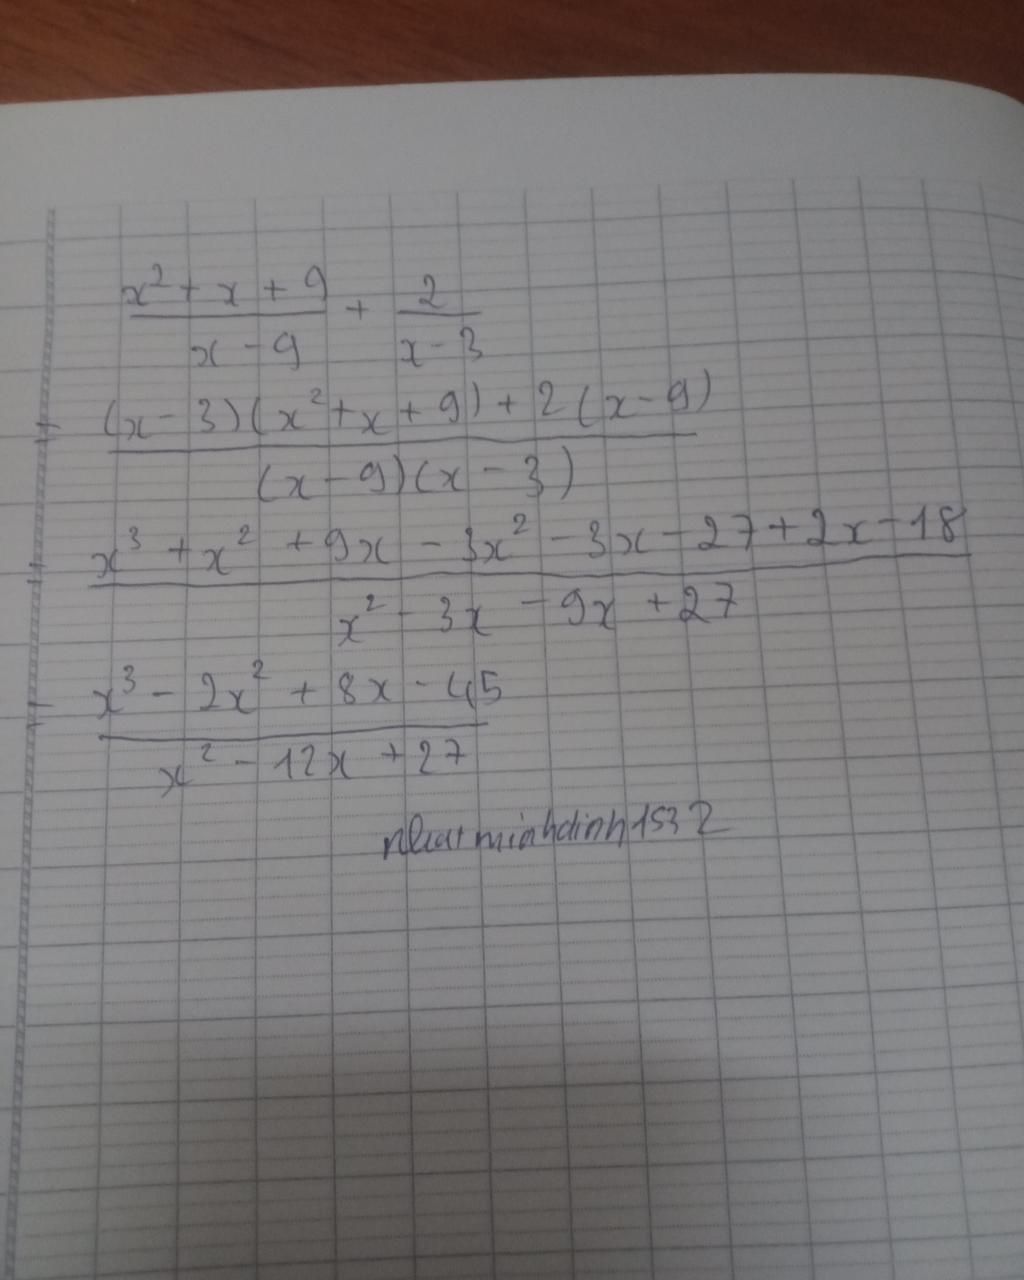 x² + x + 9 / x - 9 + 2 / x - 3
= (x - 3)(x² + x + 9) + 2(x - 9) / (x - 9)(x - 3)
= x³ + x² + 9x - 3x² - 3x - 27 + 2x - 18 / x² - 3x - 9x + 27
= x³ - 2x² + 8x - 45 / x² - 12x + 27
nhatminhdinh1532